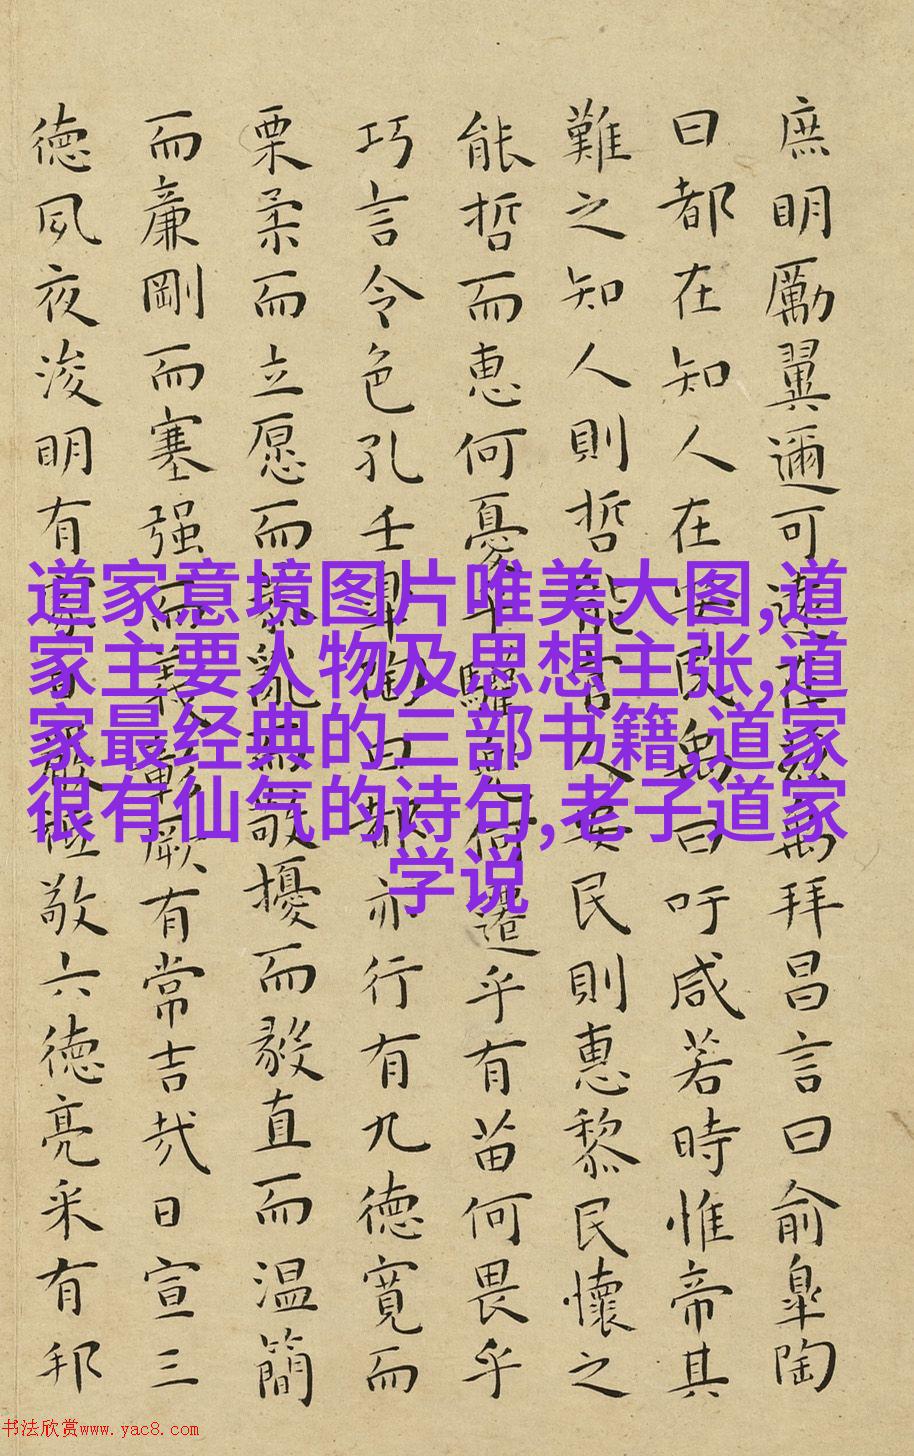 庶明勵翼邇可遠在兹禹拜昌言曰俞皐陶
曰都在知人在安民禹曰吁咸若時惟帝其
難之知人則哲能官人安民則惠黎民懷之
能哲而恵何憂乎驩兜何遷乎有苗何畏乎
巧言令色孔壬皐陶曰都亦行有九德寬而
栗柔而立愿而恭亂而敬擾而毅直而温簡
而廉剛而塞强而義彰厥有常吉哉日宣三
德夙夜浚明有家敬六德亮采有邦
道家意境图片唯美大图,道
家主要人物及思想主张,道
家最经典的三部书籍,道家
很有仙气的诗句,老子道家
学说
书法欣赏www.yac8.com